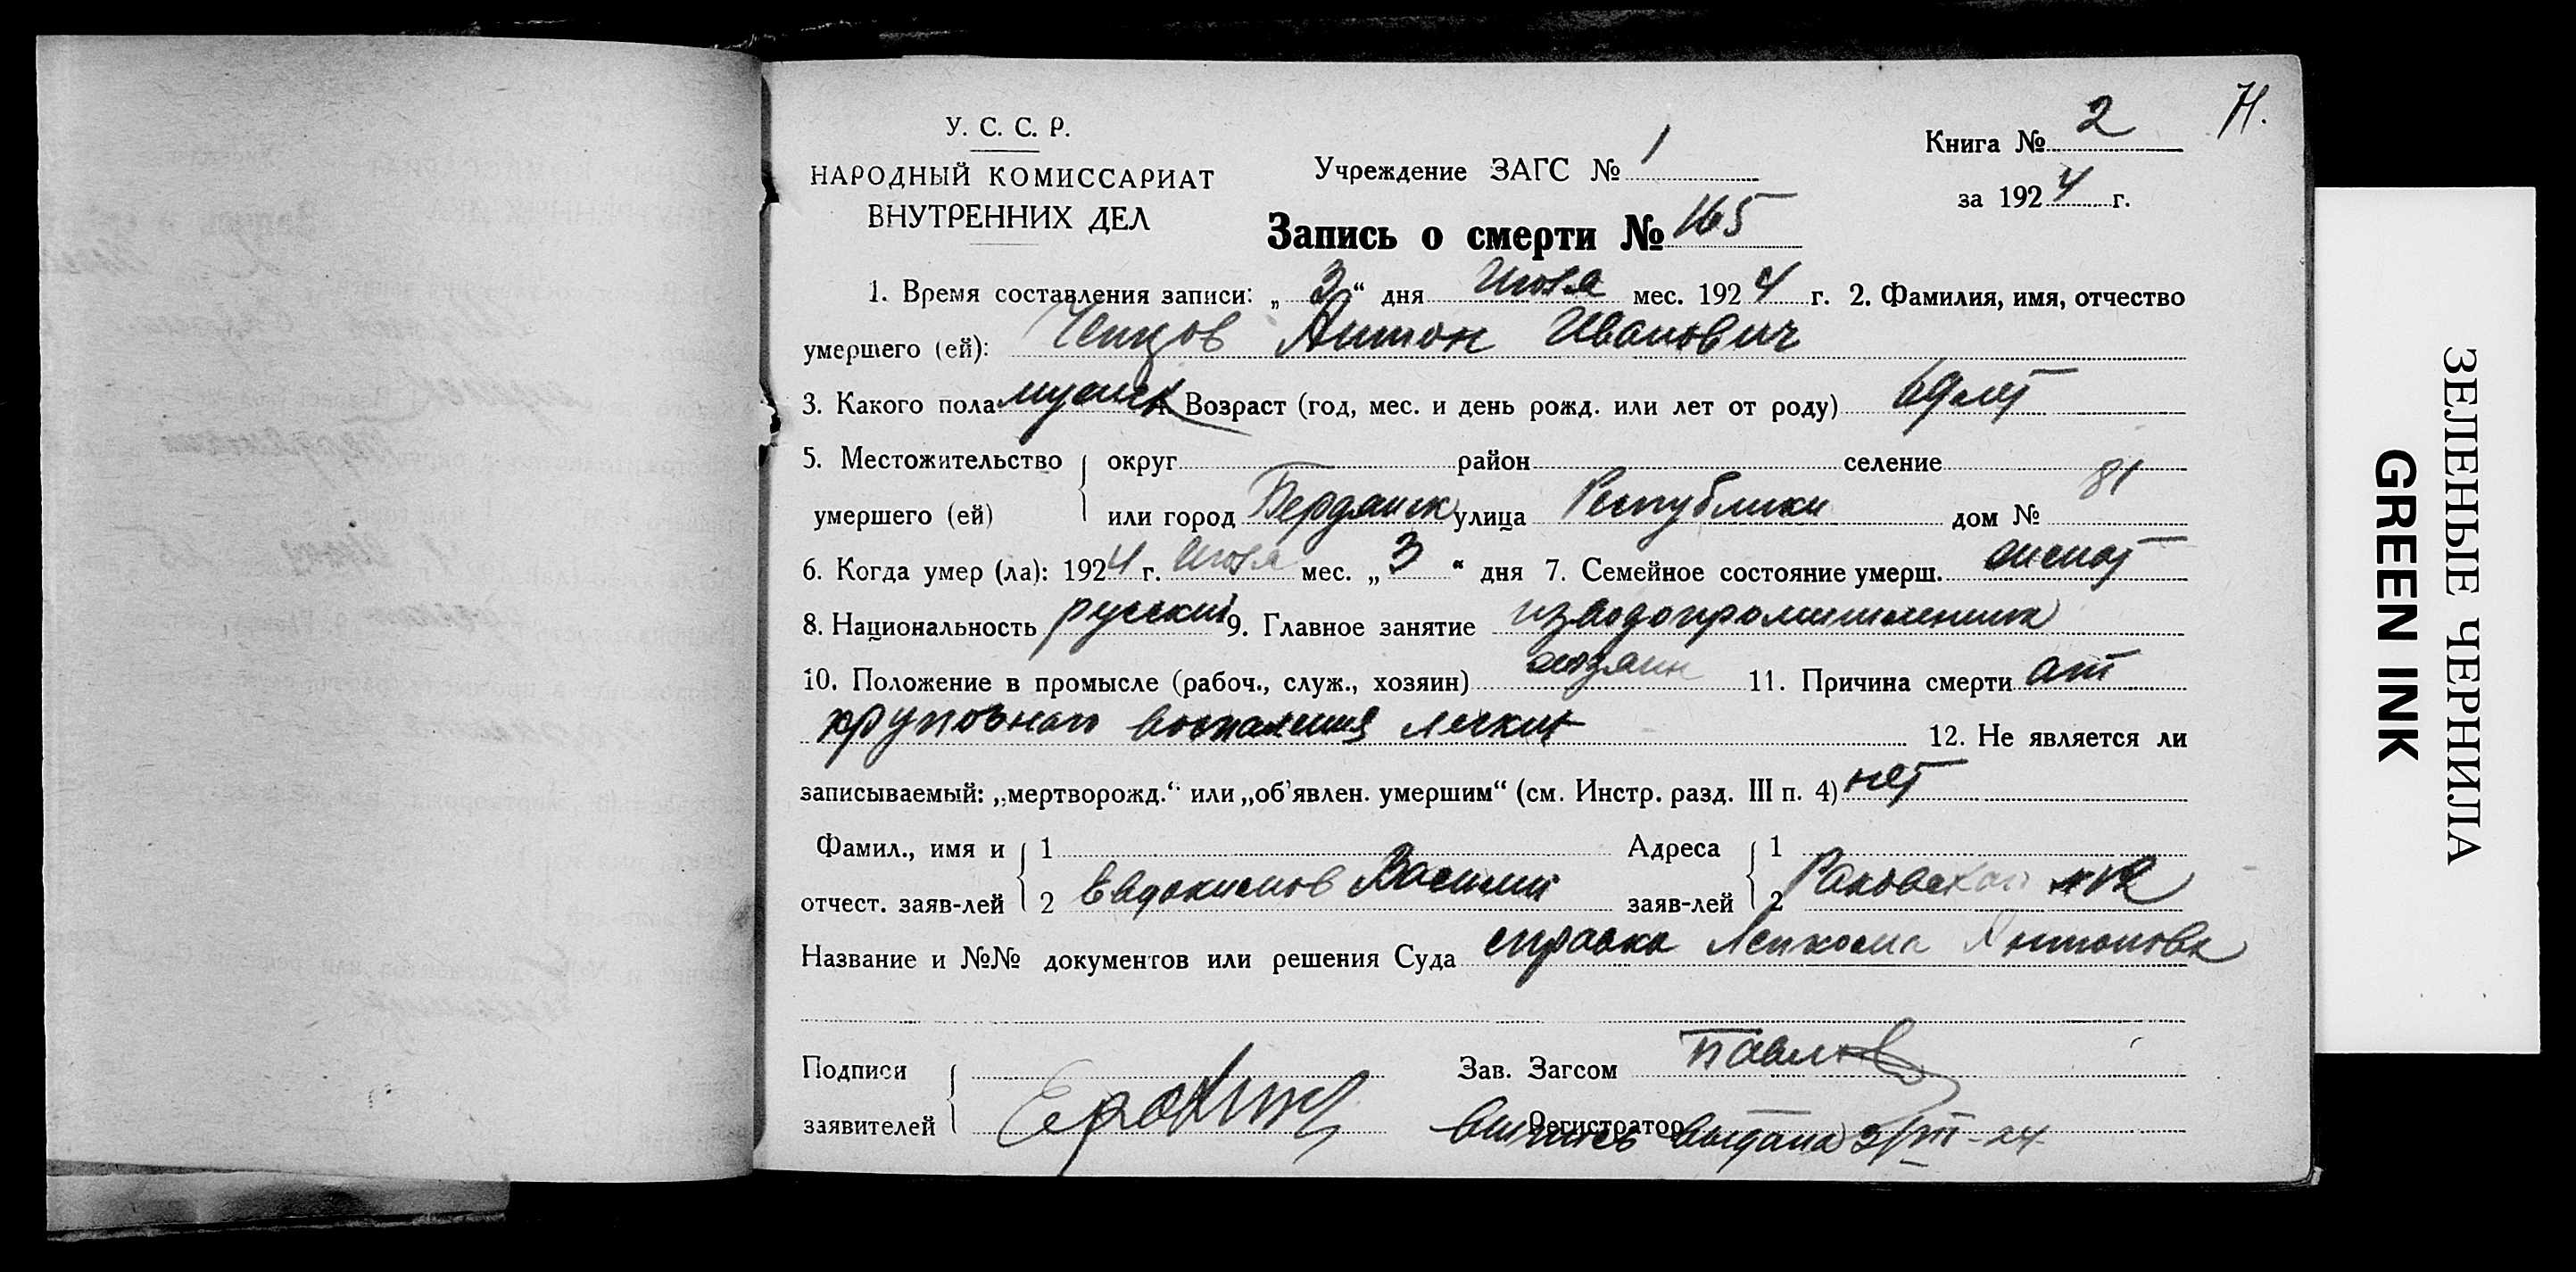 У. С. С. Р.
НАРОДНЫЙ КОМИССАРИАТ
ВНУТРЕННИХ ДЕЛ
Учреждение ЗАГС № 1
Книга № 2
71.
за 1924 г.
Запись о смерти № 165
1. Время составления записи: „ 3 “ дня Июля мес. 1924 г. 2. Фамилия, имя, отчество
умершего (ей): Чепцов Антон Иванович
3. Какого пола мужск 4. Возраст (год, мес. и день рожд. или лет от роду) 69 лет
5. Местожительство округ район селение
умершего (ей) или город Бердянск улица Республики дом № 81
6. Когда умер (ла): 1924 г. Июля мес. „ 3 “ дня 7. Семейное состояние умерш. женат
8. Национальность русский 9. Главное занятие
10. Положение в промысле (рабоч., служ., хозяин) хозяин 11. Причина смерти от
крупозного воспаления легких 12. Не является ли
записываемый: „мертворожд.“ или „об'явлен. умершим“ (см. Инстр. разд. III п. 4) нет
Фамил., имя и 1 Адреса 1
отчест. заяв-лей 2 Евдокимов Василий заяв-лей 2
Название и №№ документов или решения Суда справка Лепкома Антонова
Подписи Зав. Загсом Павлов
заявителей Регистратор
Выпись выдана 3/VII-24
ЗЕЛЕНЫЕ ЧЕРНИЛА
GREEN INK